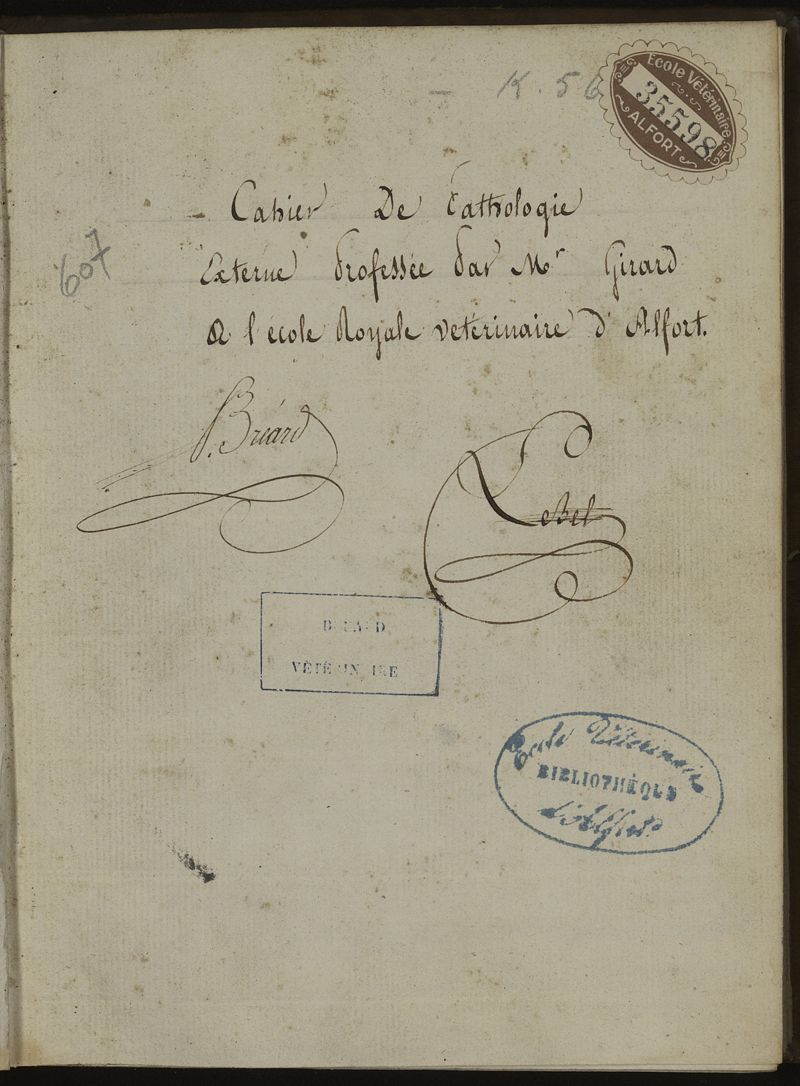 K. 56
Ecole Vétérinaire
35598
ALFORT
Cahier De Pathologie
607
Externe Professée Par Mr Girard
A l'école Royale veterinaire d'Alfort.
Bréard
LeBel
VÉTÉRINAIRE
Ecole Vétérinaire
BIBLIOTHÈQUE
d'Alfort